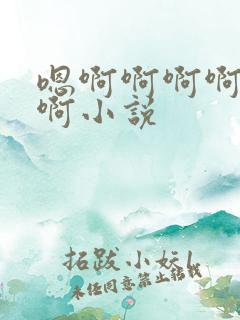 嗯啊啊啊啊
啊小说
拓跋小妖!
未经同意禁止转载